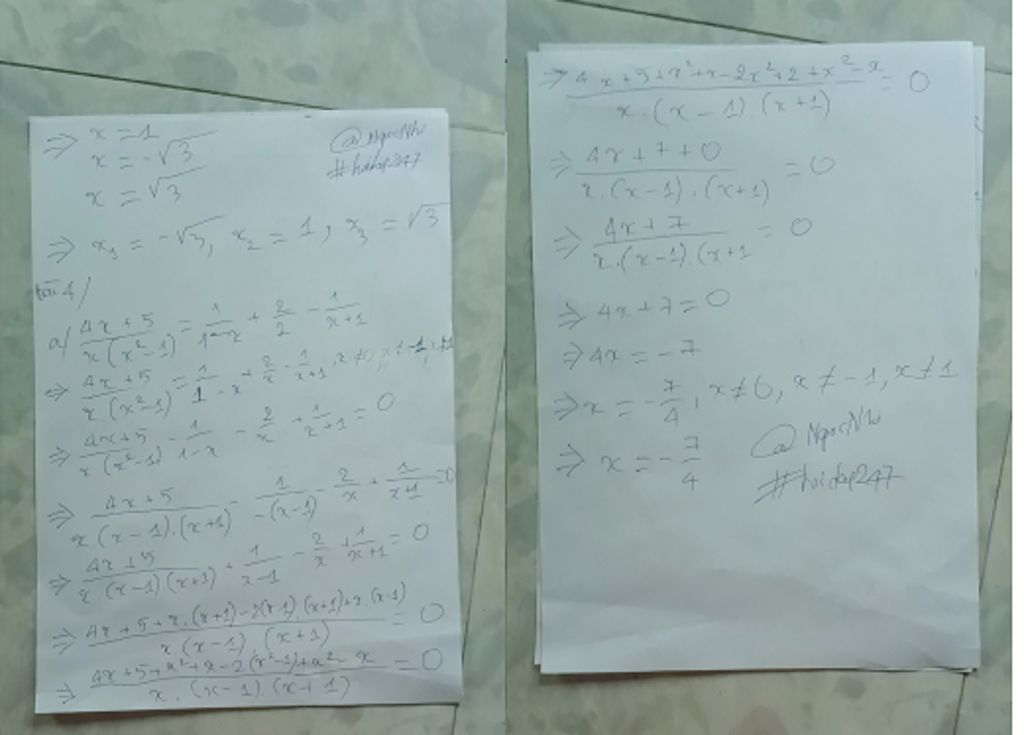 ⇒ x = 1
x = -√3
x = √3
@NgocNhi
#hoidap247
⇒ x₁ = -√3, x₂ = 1, x₃ = √3
bài 4/
a/ (4x + 5)/(x(x² - 1)) = 1/(1 - x) + 2/2 - 1/(x + 1)
⇒ (4x + 5)/(x.(x² - 1)) = 1/(1 - x) + 2/x - 1/(x + 1), x ≠ 0, x ≠ -1, x ≠ 1
⇒ (4x + 5)/(x(x² - 1)) - 1/(1 - x) - 2/x + 1/(x + 1) = 0
⇒ (4x + 5)/(x.(x - 1).(x + 1)) - 1/(-(x - 1)) - 2/x + 1/(x + 1) = 0
⇒ (4x + 5)/(x.(x - 1)(x + 1)) + 1/(x - 1) - 2/x + 1/(x + 1) = 0
⇒ (4x + 5 + x.(x + 1) - 2(x - 1).(x + 1) + x.(x - 1))/(x(x - 1).(x + 1)) = 0
⇒ (4x + 5 + x² + x - 2(x² - 1) + x² - x)/(x.(x - 1).(x + 1)) = 0
⇒ (4x + 5 + x² + x - 2x² + 2 + x² - x)/(x.(x - 1).(x + 1)) = 0
⇒ (4x + 7 + 0)/(x.(x - 1).(x + 1)) = 0
⇒ (4x + 7)/(x.(x - 1).(x + 1 = 0
⇒ 4x + 7 = 0
⇒ 4x = -7
⇒ x = -7/4, x ≠ 0, x ≠ -1, x ≠ 1
⇒ x = -7/4
@NgocNhi
#hoidap247